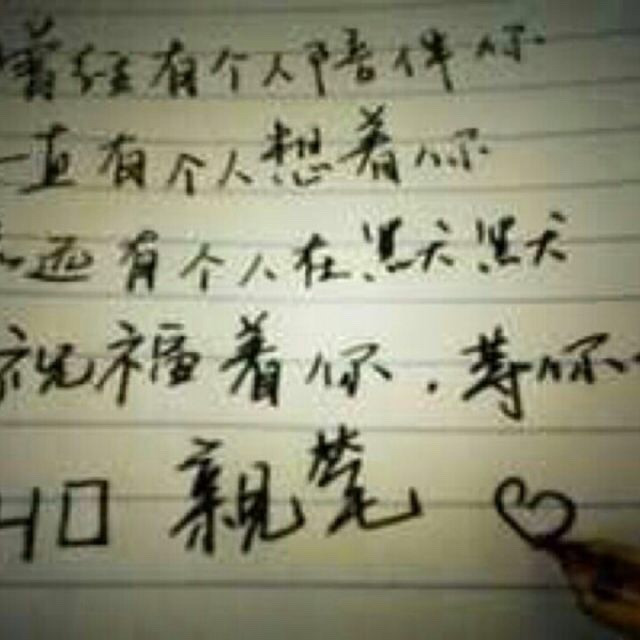 曾经有个人陪伴你
一直有个人想着你
远有个人在默默
祝福着你.等你
親